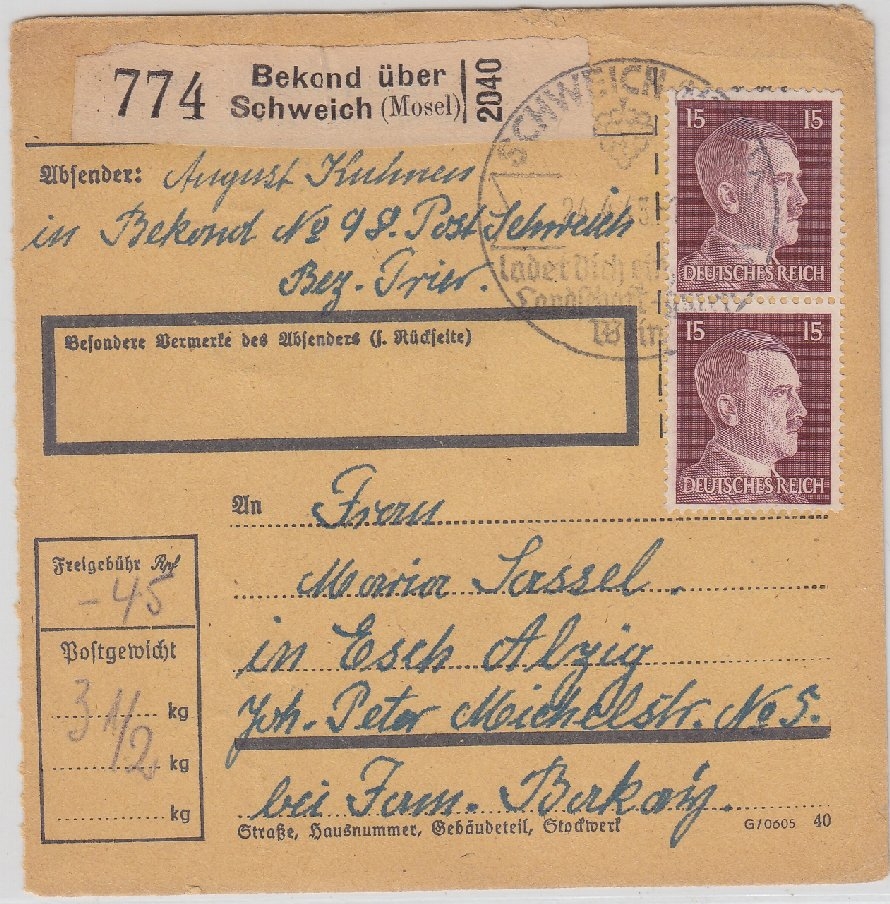 774 Bekond über
Schweich (Mosel)
2040
SCHWEICH
ladet Dich
Landschaft
Wein
15 15
DEUTSCHES REICH
15 15
DEUTSCHES REICH
Absender: August Kuhnen
in Bekond No 98. Post Schweich
Bez. Trier.
Besondere Vermerke des Absenders (s. Rückseite)
An Frau
Maria Sassel.
in Esch Alzig
Joh. Peter Michelstr. No 5.
bei Fam.
Straße, Hausnummer, Gebäudeteil, Stockwerk
G/0605 40
Freigebühr Rpf
- 45
Postgewicht
3 1/2 kg
kg
kg